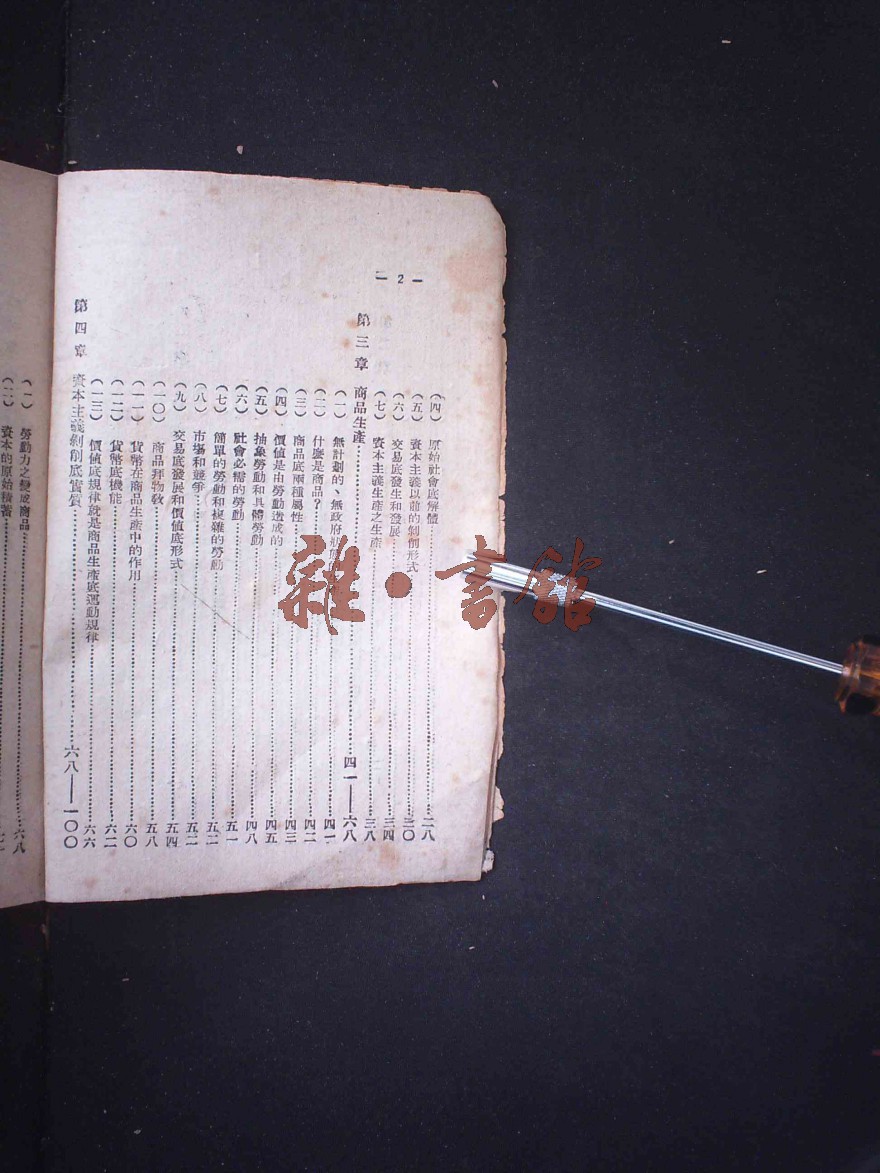 — 2 —
（四） 原始社會底解體……二八
（五） 資本主義以前的剝削形式……三〇
（六） 交易底發生和發展……三四
（七） 資本主義生產之生產……三八
第三章 商品生產……四一——六八
（一） 無計劃的、無政府狀態……四一
（二） 什麼是商品？……四二
（三） 商品底兩種屬性……四三
（四） 價值是由勞動造成的……四五
（五） 抽象勞動和具體勞動……四八
（六） 社會必需的勞動……五一
（七） 簡單的勞動和複雜的勞動……五二
（八） 市場和競爭……五二
（九） 交易底發展和價值底形式……五四
（一〇） 商品拜物教……五八
（一一） 貨幣在商品生產中的作用……六〇
（一二） 貨幣底機能……六二
（一三） 價值底規律就是商品生產底運動規律……六六
第四章 資本主義剝削底實質……六八——一〇〇
（一） 勞動力之變成商品……六八
（二） 資本的原始積蓄……七一
雜·書館